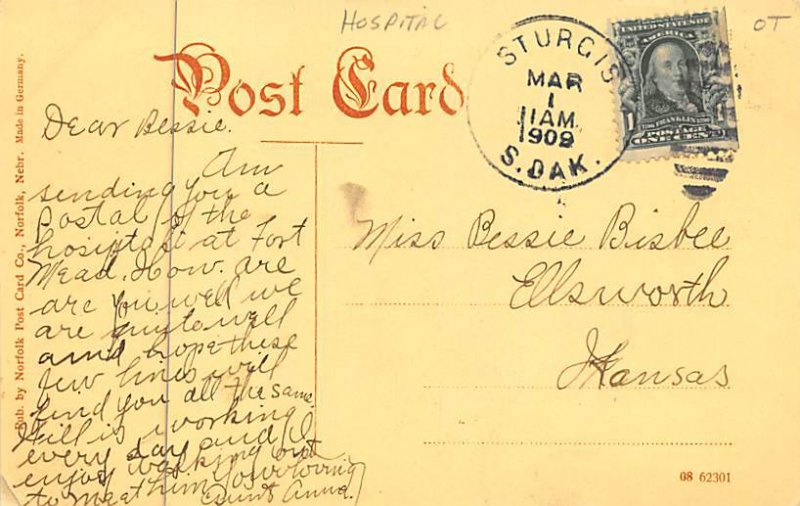 HOSPITAL
OT
Post Card
STURGIS
MAR
1
1 AM
1909
S. DAK.
UNITED STATES OF
AMERICA
FRANKLIN
POSTAGE
ONE CENT
Pub. by Norfolk Post Card Co., Norfolk, Nebr. Made in Germany.
Dear Bessie.
Am
sending you a
Postal of the
hosiptal at Fort
Mead. How. are
are you well we
are quite well
and hope these
few lines will
find you all the same.
Will is working
every day and I
enjoy walking out
to meat him your loving
Aunt Anna.
Miss Bessie Bisbee
Ellsworth
Kansas
08 62301